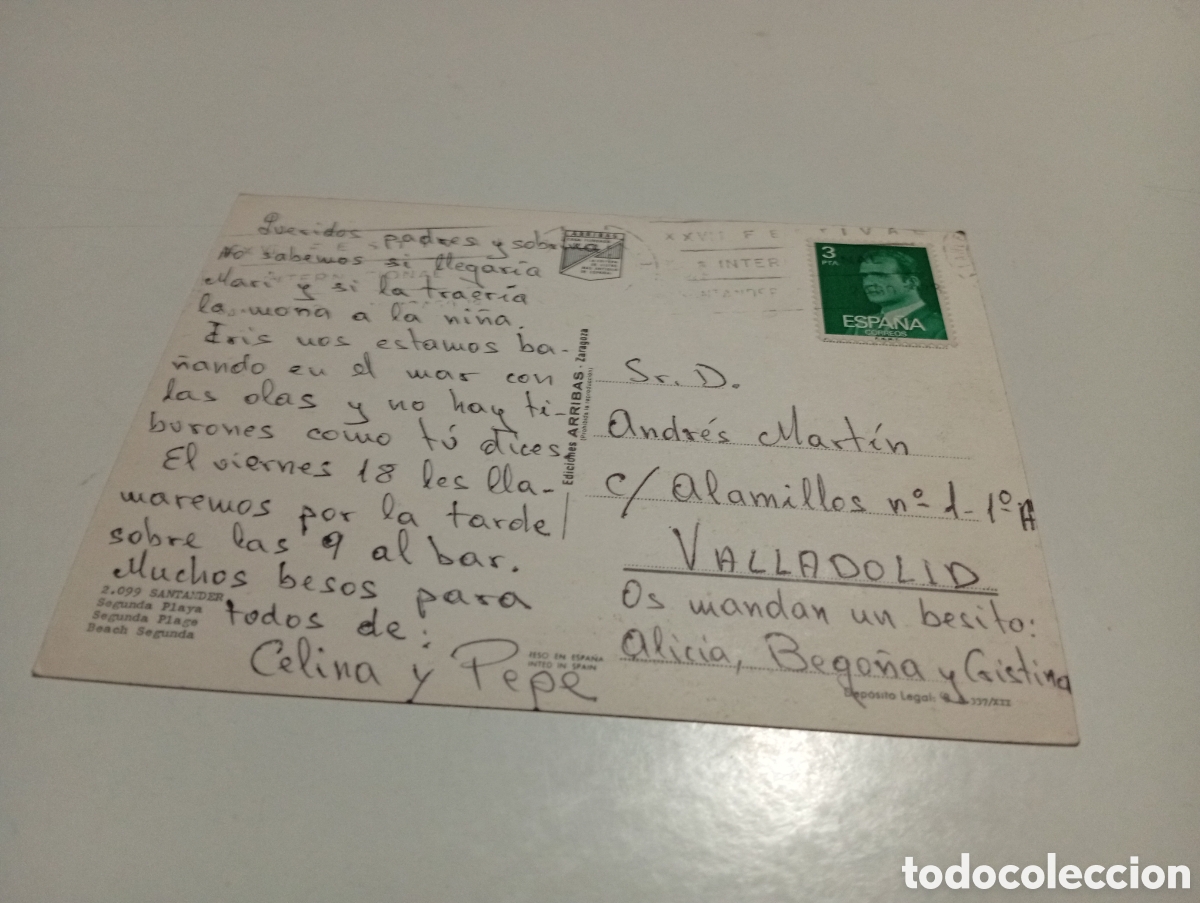 Queridos padres y sobrina
No sabemos si llegaría
Mari y si la traería
la moña a la niña.
Iris nos estamos ba-
ñando en el mar con
las olas y no hay ti-
burones como tú dices
El viernes 18 les lla-
maremos por la tarde
sobre las 9 al bar.
Muchos besos para
todos de:
Celina y Pepe
2.099 SANTANDER
Segunda Playa
Segunda Plage
Beach Segunda
ARRIBAS
Ediciones ARRIBAS - Zaragoza
INTER
3
PTA
ESPAÑA
CORREOS
Sr. D.
Andrés Martín
c/ Alamillos nº 1-1º A
VALLADOLID
Os mandan un besito:
Alicia, Begoña y Cristina
ESO EN ESPAÑA
INTED IN SPAIN
Depósito Legal:
todocoleccion